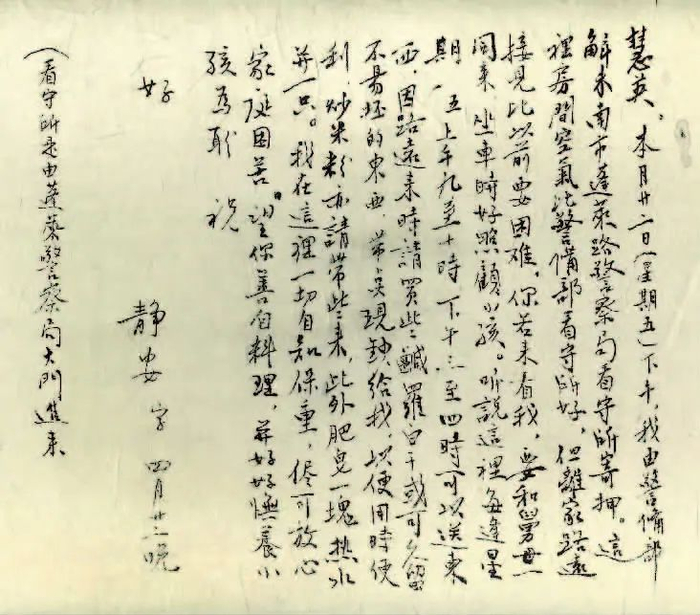 慧英。本月廿二日(星期五)下午，我由警備部
解來南市蓬萊路警察局看守所寄押。這
裡房間空氣比警備部看守所好，但離家路遠
接見比以前要困難，你若来看我，要和舅母一
同來，坐車時好照顧小孩。听說這裡每逢星
期一、五上午九至十時下午三至四時可以送東
西，因路遠来時請買些鹹羅白干或可久留
不易坯的東西，帶点現鈔給我，以便用時便
利，炒米粉亦請帶些来，此外肥皂一塊热水
并一只。我在這裡一切自知保重，儘可放心
家庭困苦。望你善自料理，并好好撫養小
孩為盼　祝
好
靜安字　四月廿二晚
(看守所是由蓬萊警察局大門進来